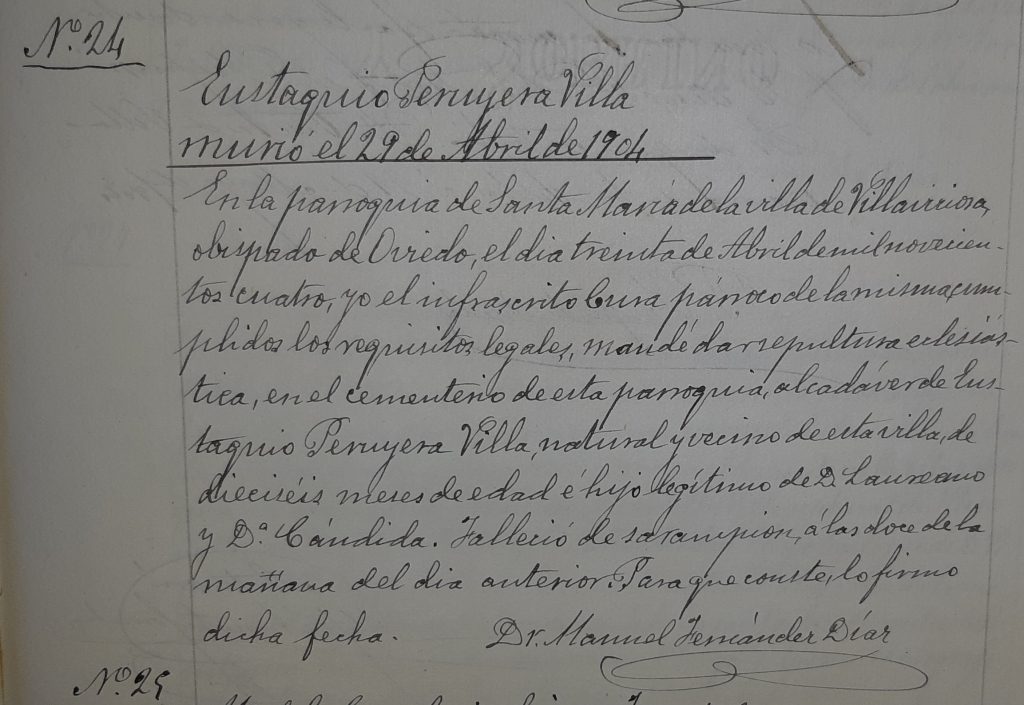 Nº. 24
Eustaquio Peruyera Villa
murió el 29 de Abril de 1904
En la parroquia de Santa María de la villa de Villaviciosa,
obispado de Oviedo, el dia treinta de Abril de mil novecien-
tos cuatro, yo el infrascrito Cura párroco de la misma, cum-
plidos los requisitos legales, mandé dar sepultura eclesiás-
tica, en el cementerio de esta parroquia, al cadáver de Eus-
taquio Peruyera Villa, natural y vecino de esta villa, de
dieciséis meses de edad é hijo legítimo de D. Laureano
y Dª. Cándida. Falleció de sarampion, á las doce de la
mañana del dia anterior. Para que conste, lo firmo
dicha fecha. Dr. Manuel Fernández Díaz
Nº. 25